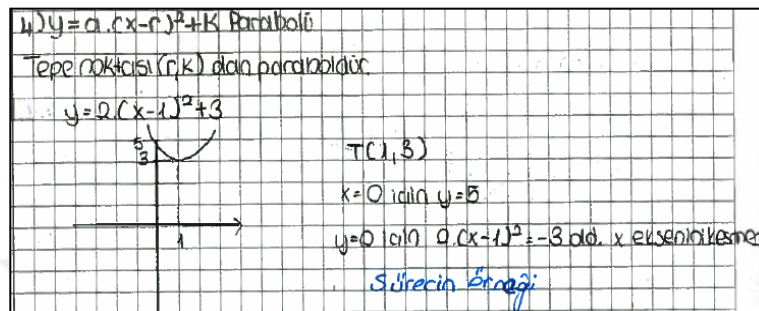 4) y=a.(x-r)²+k Parabolü
Tepe noktası (r,k) olan paraboldür.
y=2.(x-1)²+3
5
3
1
T(1,3)
x=0 için y=5
y=0 için 2.(x-1)²=-3 old. x eksenini kesmez
Sürecin örneği